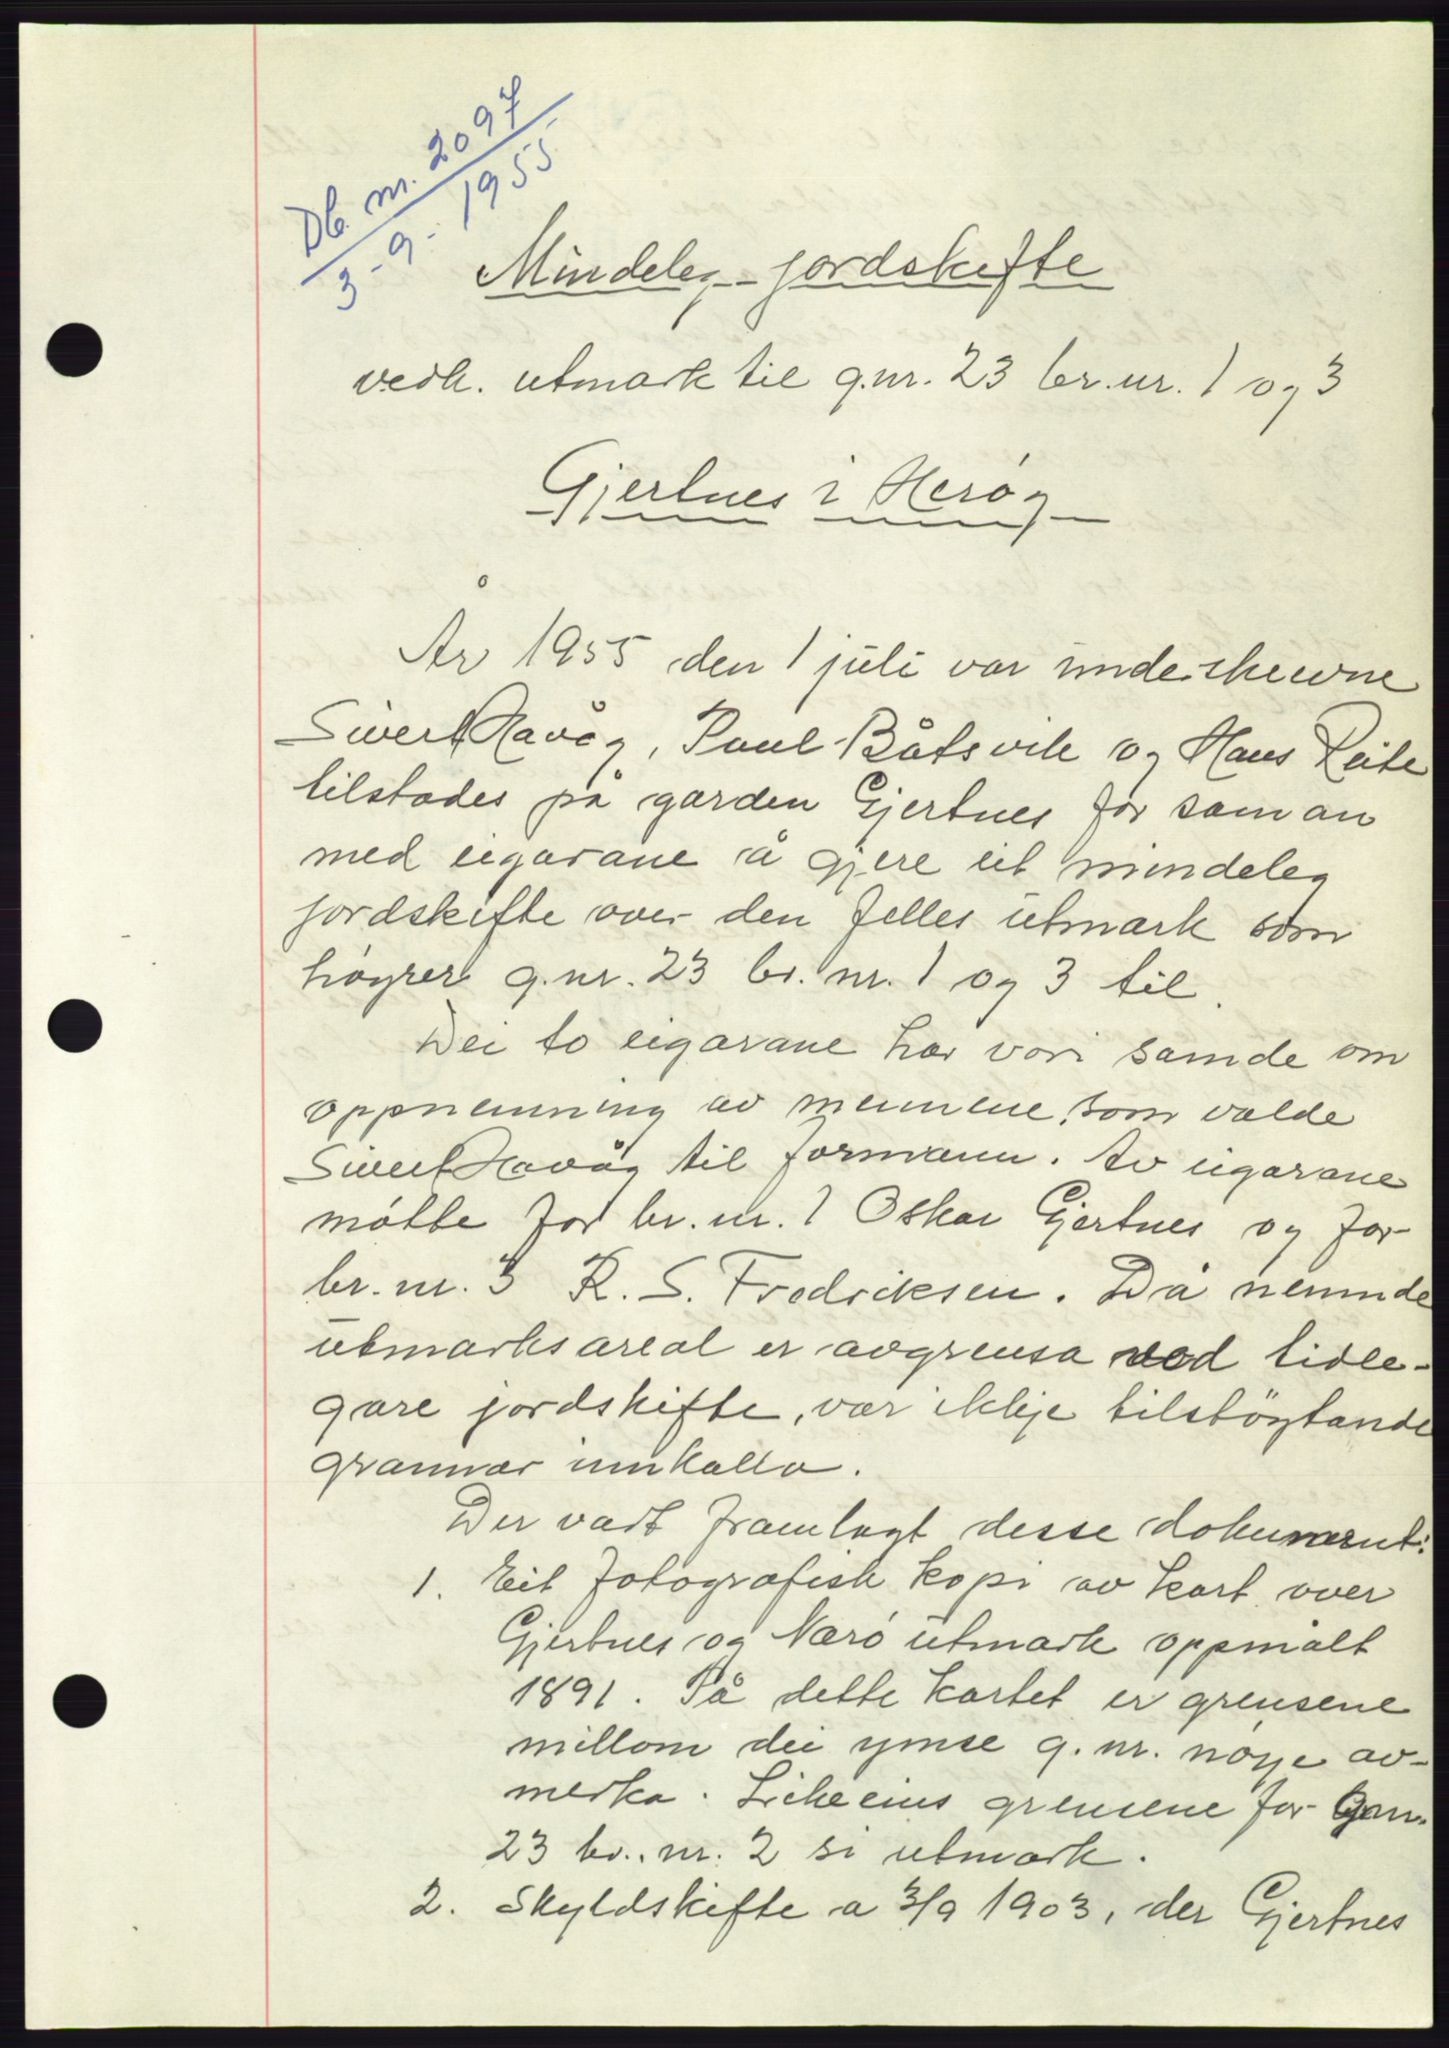 Db. nr. 2097
3-9-1955
Mindeleg jordskifte
vedk. utmark til g.nr. 23 br.nr. 1 og 3
Gjertnes i Herøy
År 1955 den 1 juli var underskrevne
Sivert Havåg, Paul Båtsvik og Hans Reite
tilstades på garden Gjertnes for saman
med eigarane å gjere eit mindeleg
jordskifte over den felles utmark som
høyrer g.nr. 23 br.nr. 1 og 3 til.
Dei to eigarane har vori samde om
oppnemning av mennene, som valde
Sivert Havåg til formann. Av eigarane
møtte for br.nr. 1 Oskar Gjertnes og for
br.nr. 3 R. S. Fredriksen. Då nemnde
utmarksareal er avgrensa ved tidle-
gare jordskifte, var ikkje tilstöytande
grannar innkalla.
Der vart framlagt desse dokument:
1. Eit fotografisk kopi av kart over
Gjertnes og Nærø utmark oppmålt
1891. På dette kartet er grensene
millom dei ymse g.nr. nøye av-
merka. Likeeins grensene for g.nr.
23 br.nr. 2 si utmark.
2. Skyldskifte a 3/9 1903, der Gjertnes